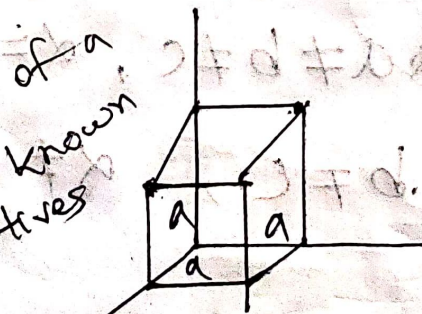 of a
known
tives
a
a
a